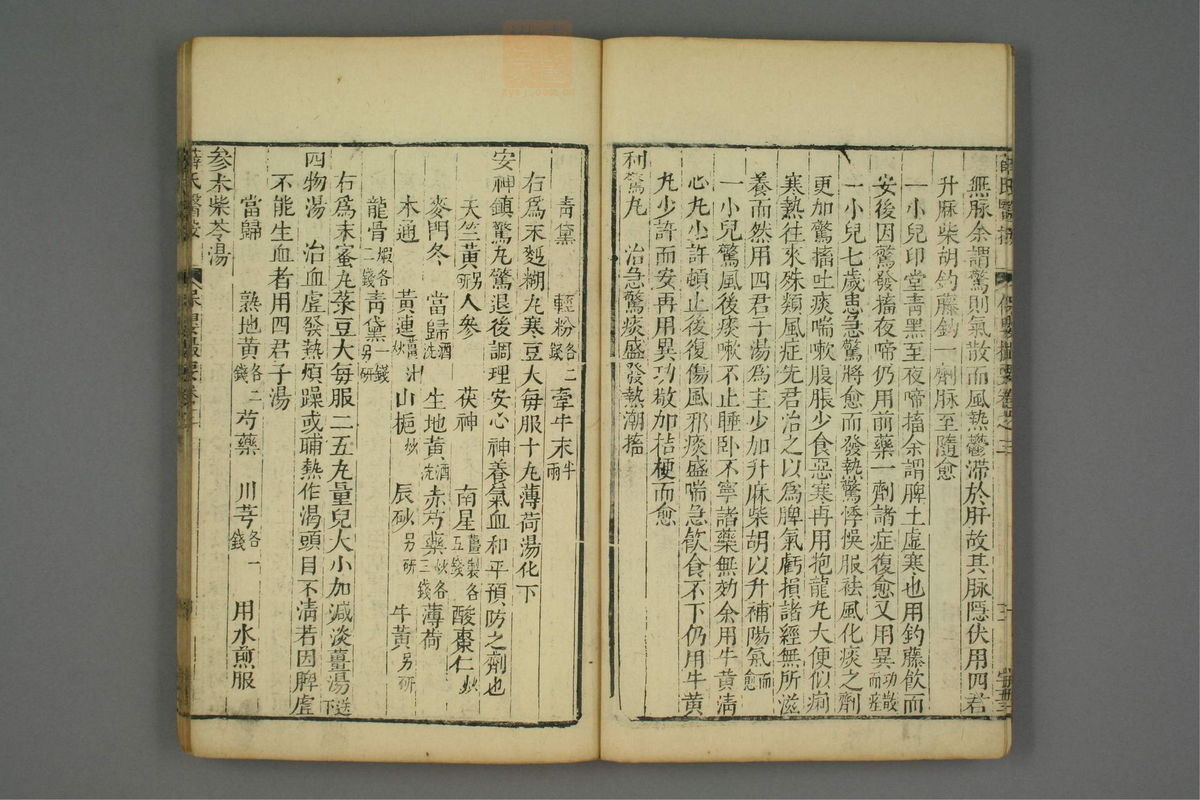 無脉余謂驚則氣散而風熱鬱滯於肝故其脉隱伏用四君
升麻柴胡鈎藤鈎一劑脉至隨愈
一小兒印堂青黑至夜啼搐余謂脾土虛寒也用鈎藤飲而
安後因驚發搐夜啼仍用前藥一劑諸症復愈又用異功散而痊
一小兒七歲患急驚將愈而發熱驚悸悞服祛風化痰之劑
更加驚搐吐痰喘嗽腹脹少食惡寒再用抱龍丸大便似痢
寒熱往來殊類風症先君治之以爲脾氣虧損諸經無所滋
養而然用四君子湯爲主少加升麻柴胡以升補陽氣而愈
一小兒驚風後痰嗽不止睡卧不寧諸藥無効余用牛黃淸
心丸少許頓止後復傷風邪痰盛喘急飲食不下仍用牛黃
丸少許而安再用異功散加桔梗而愈
利驚丸 治急驚痰盛發熱潮搐
青黛 輕粉各二錢 牽牛末半兩
右爲末麪糊丸寒豆大每服十丸薄荷湯化下
安神鎮驚丸驚退後調理安心神養氣血和平預防之劑也
天竺黃另研 人參 茯神 南星薑製各五錢 酸棗仁炒
麥門冬 當歸酒洗 生地黃酒洗 赤芍藥炒各三錢 薄荷
木通 黃連薑汁炒 山梔炒 辰砂另研 牛黃另研
龍骨煅各二錢 青黛一錢另研
右爲末蜜丸菉豆大每服二五丸量兒大小加減淡薑湯送下
四物湯 治血虛發熱煩躁或晡熱作渴頭目不淸若因脾虛
不能生血者用四君子湯
當歸 熟地黃各二錢 芍藥 川芎各一錢 用水煎服
參朮柴苓湯